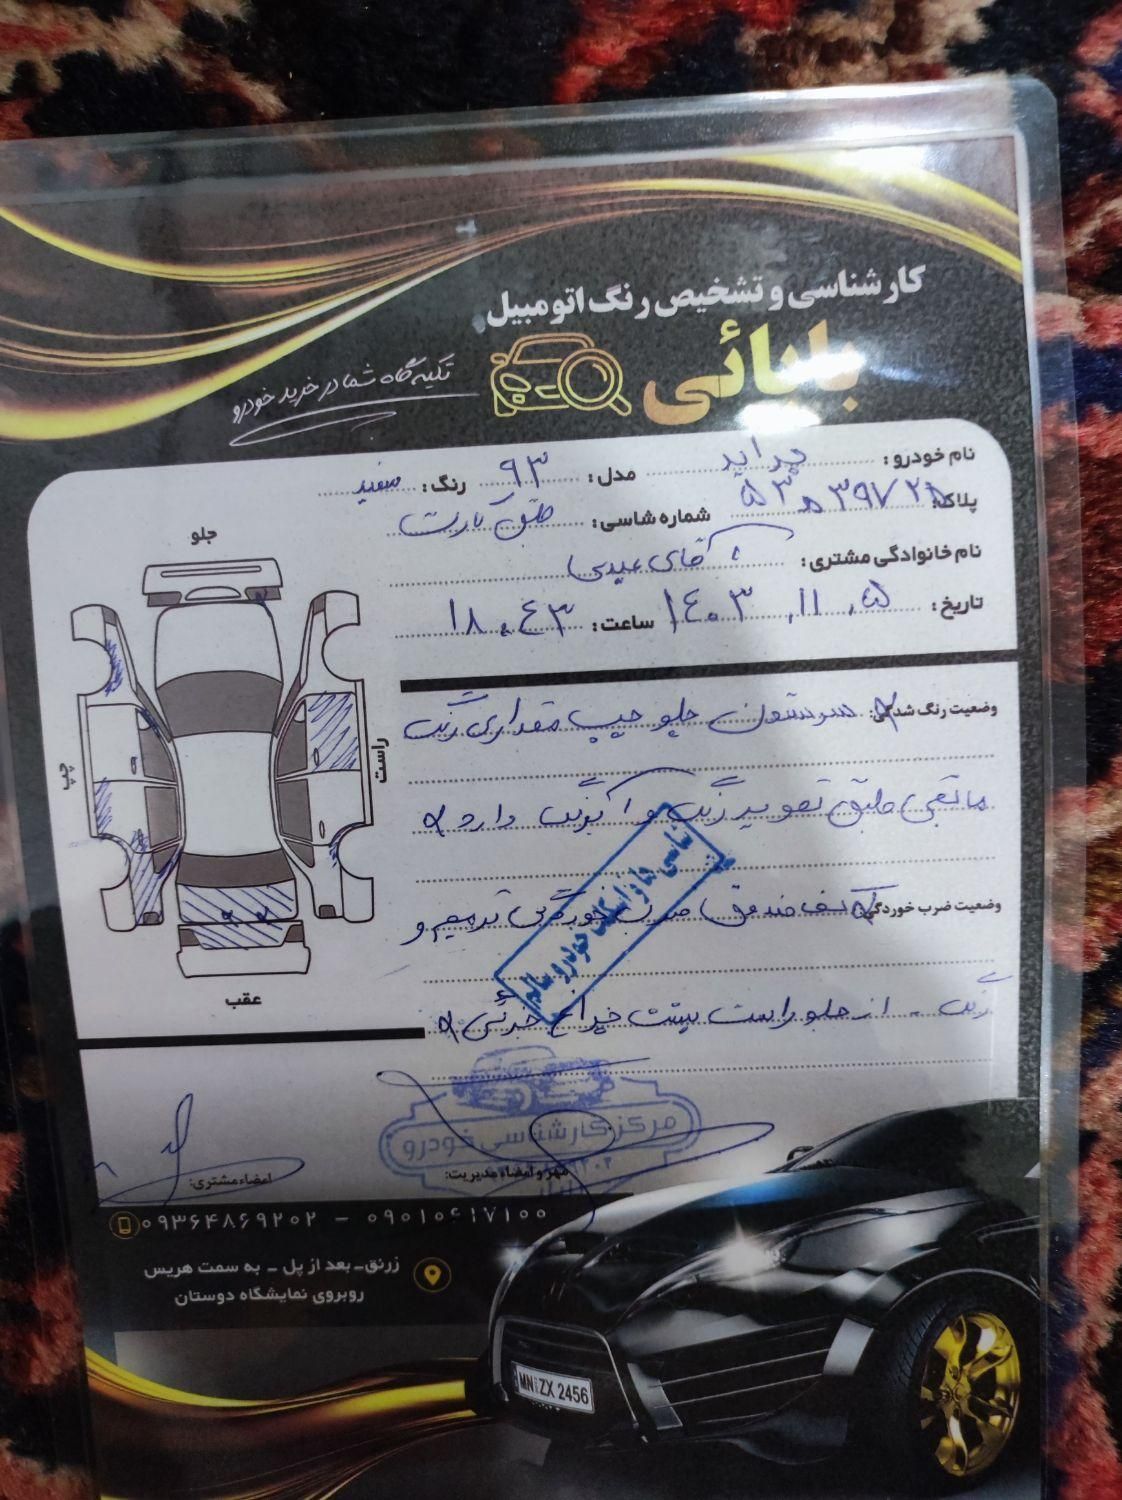 کارشناسی و تشخیص رنگ اتومبیل
بابائی
تکیه گاه شما در خرید خودرو
نام خودرو: پراید مدل: ۹۳ رنگ: سفید
پلاک: شماره شاسی: طبق کارت
نام خانوادگی مشتری: آقای عیدی
تاریخ: ۱۴۰۳.۱۱.۰۵ ساعت: ۱۸.۴۳
جلو
چپ
راست
عقب
وضعیت رنگ شدگی: سرستون جلو چپ مقداری رنگ
مابقی طبق تصویر رنگ و آبرنگ دارد
وضعیت ضرب خوردگی: کف صندوق ضرب خوردگی ترمیم و
رنگ - از جلو راست پشت چراغ جزئی
مرکز کارشناسی خودرو
امضاء مشتری:
مهر و امضاء مدیریت:
۰۹۳۶۴۸۶۹۲۰۲ - ۰۹۰۱۰۶۱۷۱۰۰
زرنق - بعد از پل - به سمت هریس
روبروی نمایشگاه دوستان
MN ZX 2456